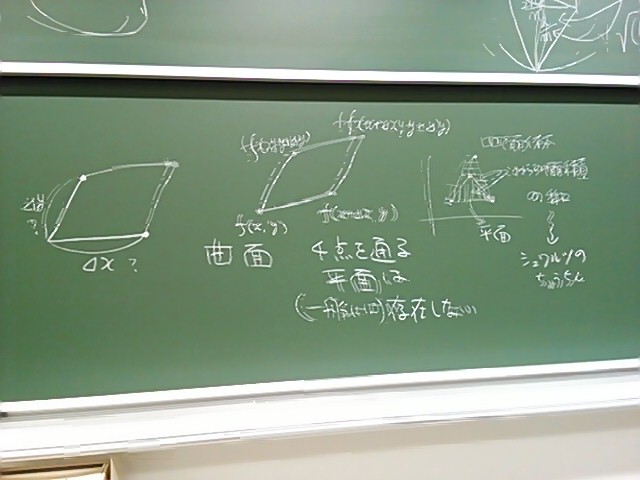 Δy
?
Δx ?
f(x, y+Δy)
f(x+Δx, y+Δy)
f(x, y)
f(x+Δx, y)
曲面
4点を通る
平面は
(一般には)存在しない
平面
の和
シュワルツの
ちょうちん